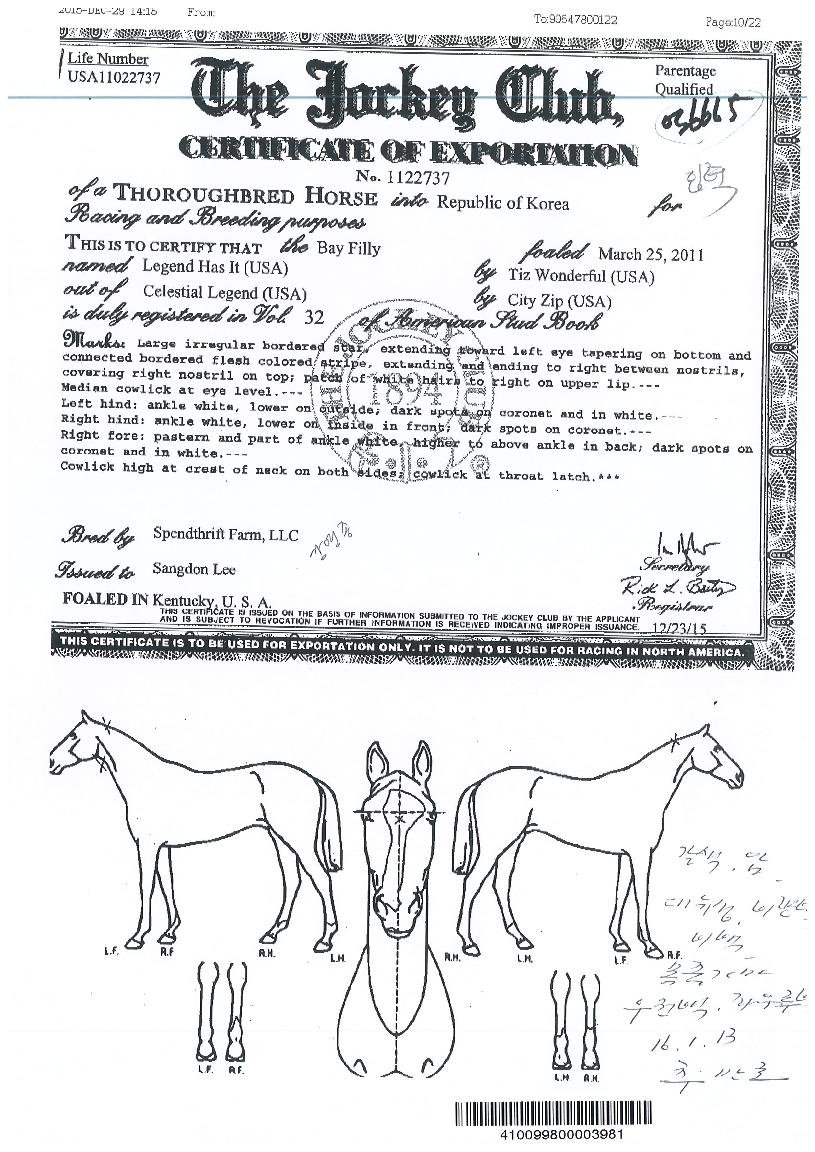 2015-DEC-29 14:15 From: To:90647800122 Page:10/22
Life Number
USA11022737
The Jockey Club,
Parentage
Qualified
036665
CERTIFICATE OF EXPORTATION
No. 1122737
of a THOROUGHBRED HORSE into Republic of Korea for
Racing and Breeding purposes
THIS IS TO CERTIFY THAT the Bay Filly foaled March 25, 2011
named Legend Has It (USA) by Tiz Wonderful (USA)
out of Celestial Legend (USA) by City Zip (USA)
is duly registered in Vol. 32 of American Stud Book
Marks: Large irregular bordered star, extending toward left eye tapering on bottom and
connected bordered flesh colored stripe, extending and ending to right between nostrils,
covering right nostril on top; patch of white hairs to right on upper lip.---
Median cowlick at eye level.---
Left hind: ankle white, lower on outside; dark spots on coronet and in white.---
Right hind: ankle white, lower on inside in front; dark spots on coronet.---
Right fore: pastern and part of ankle white, higher to above ankle in back; dark spots on
coronet and in white.---
Cowlick high at crest of neck on both sides; cowlick at throat latch.***
1894
Bred by Spendthrift Farm, LLC
Issued to Sangdon Lee
Secretary
Registrar
FOALED IN Kentucky, U. S. A.
THIS CERTIFICATE IS ISSUED ON THE BASIS OF INFORMATION SUBMITTED TO THE JOCKEY CLUB BY THE APPLICANT
AND IS SUBJECT TO REVOCATION IF FURTHER INFORMATION IS RECEIVED INDICATING IMPROPER ISSUANCE.
12/23/15
THIS CERTIFICATE IS TO BE USED FOR EXPORTATION ONLY. IT IS NOT TO BE USED FOR RACING IN NORTH AMERICA.
L.F. R.F R.H. L.H. R.H. L.H. L.F. R.F.
16.1.13
L.F. R.F. L.H R.H.
410099800003981